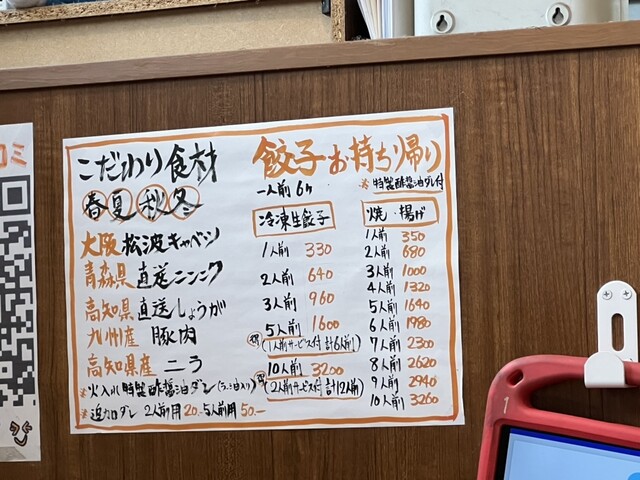 コミ
こだわり食材
春夏秋冬
大阪 松波キャベツ
青森県 直送ニンニク
高知県 直送しょうが
九州産 豚肉
高知県産 ニラ
※火入れ特製酢醤油ダレ(ラー油入り)
※追加ダレ 2人前用20.- 5人前用50.-
餃子お持ち帰り
一人前6ヶ
※特製酢醤油ダレ付
冷凍生餃子
1人前 330
2人前 640
3人前 960
5人前 1600
(1人前サービス付 計6人前)
10人前 3200
(2人前サービス付 計12人前)
焼・揚げ
1人前 350
2人前 680
3人前 1000
4人前 1320
5人前 1640
6人前 1980
7人前 2300
8人前 2620
9人前 2940
10人前 3260
1